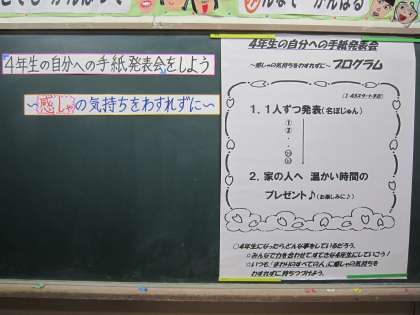 4年生の自分への手紙発表会をしよう
～感しゃの気持ちをわすれずに～
4年生の自分への手紙発表会
～感しゃの気持ちをわすれずに～プログラム
1. 1人ずつ発表(名ぼじゅん)
①
②
2. 家の人へ 温かい時間の
プレゼント♪(お楽しみに♪)
○4年生になったら、どんな事をしているだろう。
○みんなで力を合わせて、すてきな4年生にしていこう!
○いつも「まわりのすべての人」に感しゃの気持ちを
わすれずに持ちつづけよう。